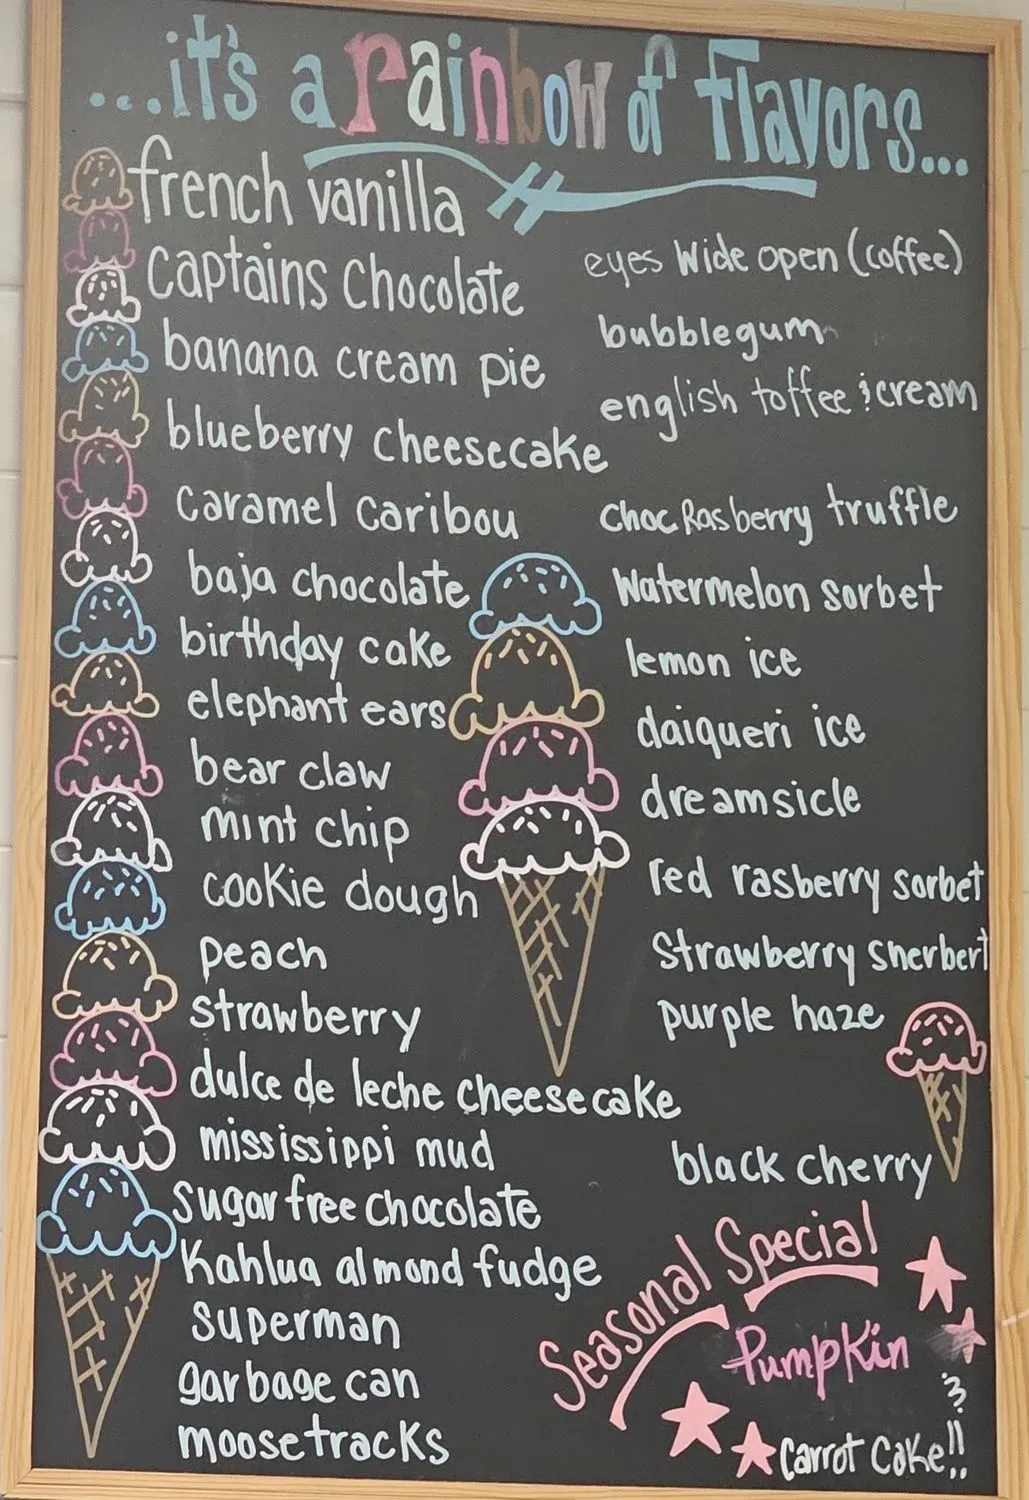 ...it's a rainbow of flavors...
french vanilla
captains chocolate
banana cream pie
blueberry cheesecake
caramel caribou
baja chocolate
birthday cake
elephant ears
bear claw
mint chip
cookie dough
peach
strawberry
dulce de leche cheesecake
mississippi mud
sugar free chocolate
Kahlua almond fudge
superman
garbage can
moosetracks
eyes wide open (coffee)
bubblegum
english toffee & cream
choc Rasberry truffle
Watermelon sorbet
lemon ice
daiqueri ice
dreamsicle
red rasberry sorbet
Strawberry sherbert
purple haze
black cherry
Seasonal Special
Pumpkin
&
Carrot Cake!!